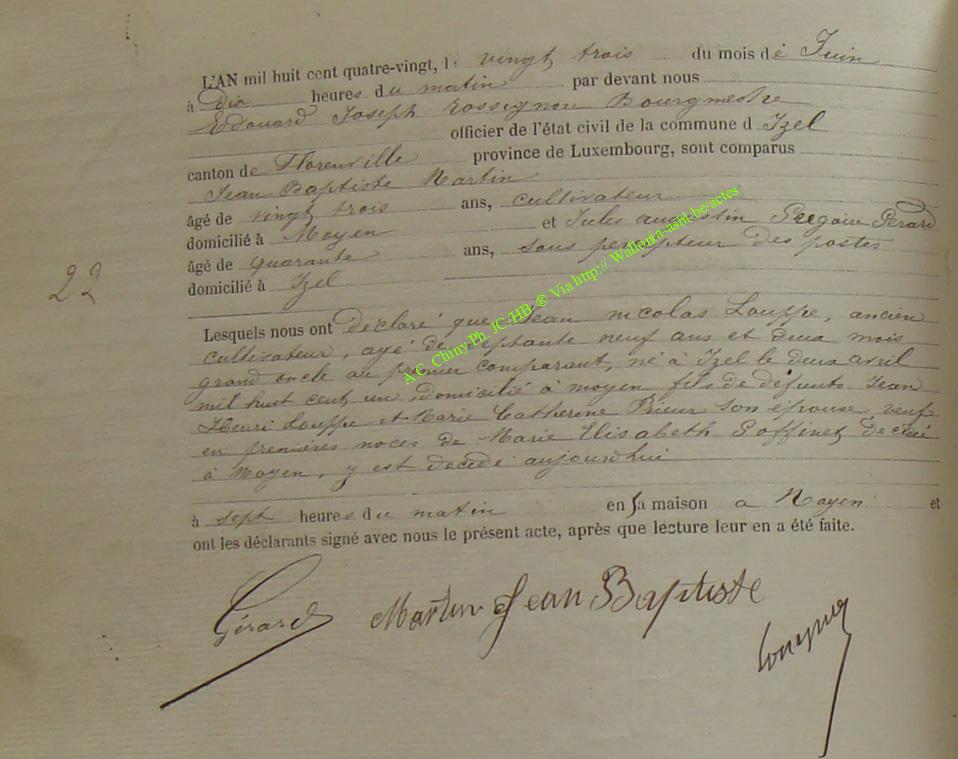 L'AN mil huit cent quatre-vingt, le vingt trois du mois de Juin
à dix heures du matin par devant nous
Edouard Joseph Rossignon Bourgmestre
officier de l'état civil de la commune d Izel
canton de Florenville province de Luxembourg, sont comparus
Jean Baptiste Martin
âgé de vingt trois ans, cultivateur
domicilié à Moyen et Jules augustin Gérard
âgé de quarante ans, sous percepteur des postes
domicilié à Izel
22
Lesquels nous ont declaré que Jean nicolas Louppe, ancien
cultivateur, agé de septante neuf ans et deux mois
grand oncle au premier comparant, né à Izel le deux avril
mil huit cent un, domicilié à moyen fils de défunts Jean
Henri Louppe et Marie Catherine Prieur son épouse, veuf
en premières noces de Marie Elisabeth Goffinet décédée
à Moyen, y est decedé aujourdhui
à sept heures du matin en sa maison a Moyen et
ont les déclarants signé avec nous le présent acte, après que lecture leur en a été faite.
Gérard Martin Jean Baptiste
A.C. Chiny-Ph JC/HB ® Via http:// Wallonia-asbl.be/actes